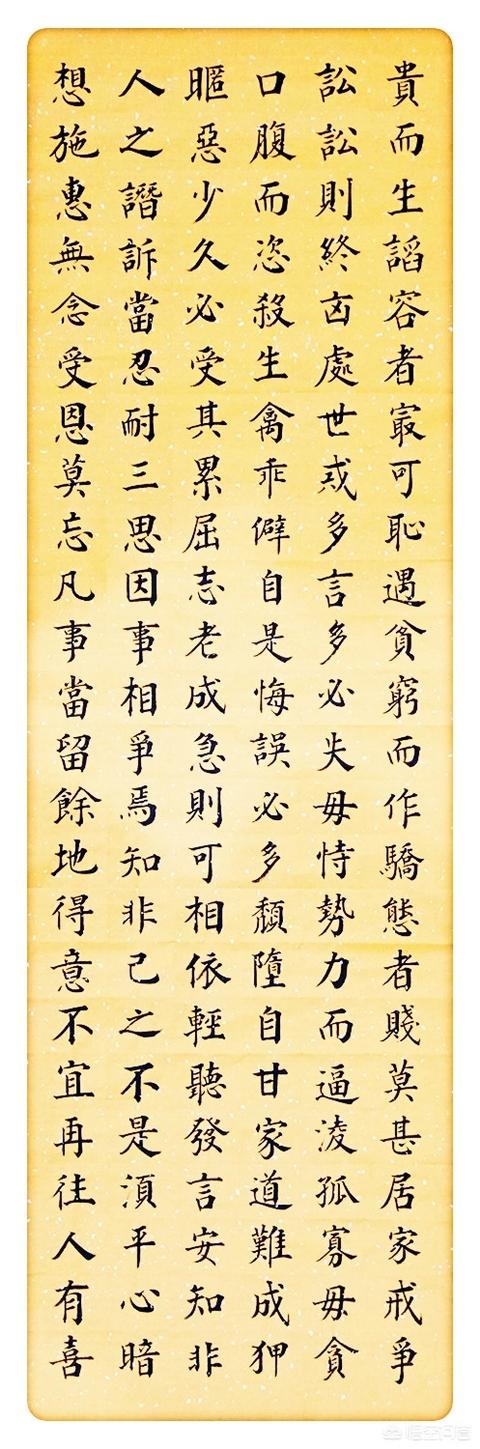 貴而生謟容者㝡可恥遇貧窮而作驕態者賤莫甚居家戒爭
訟訟則終㐫處世戒多言多必失毋恃勢力而逼淩孤寡毋貪
口腹而恣殺生禽乖僻自是悔誤必多頹墮自甘家道難成狎
暱惡少久必受其累屈志老成急則可相依輕聽發言安知非
人之譖訴當忍耐三思因事相爭焉知非己之不是湏平心暗
想施惠無念受恩莫忘凡事當留餘地得意不宜再往人有喜
悟空问答